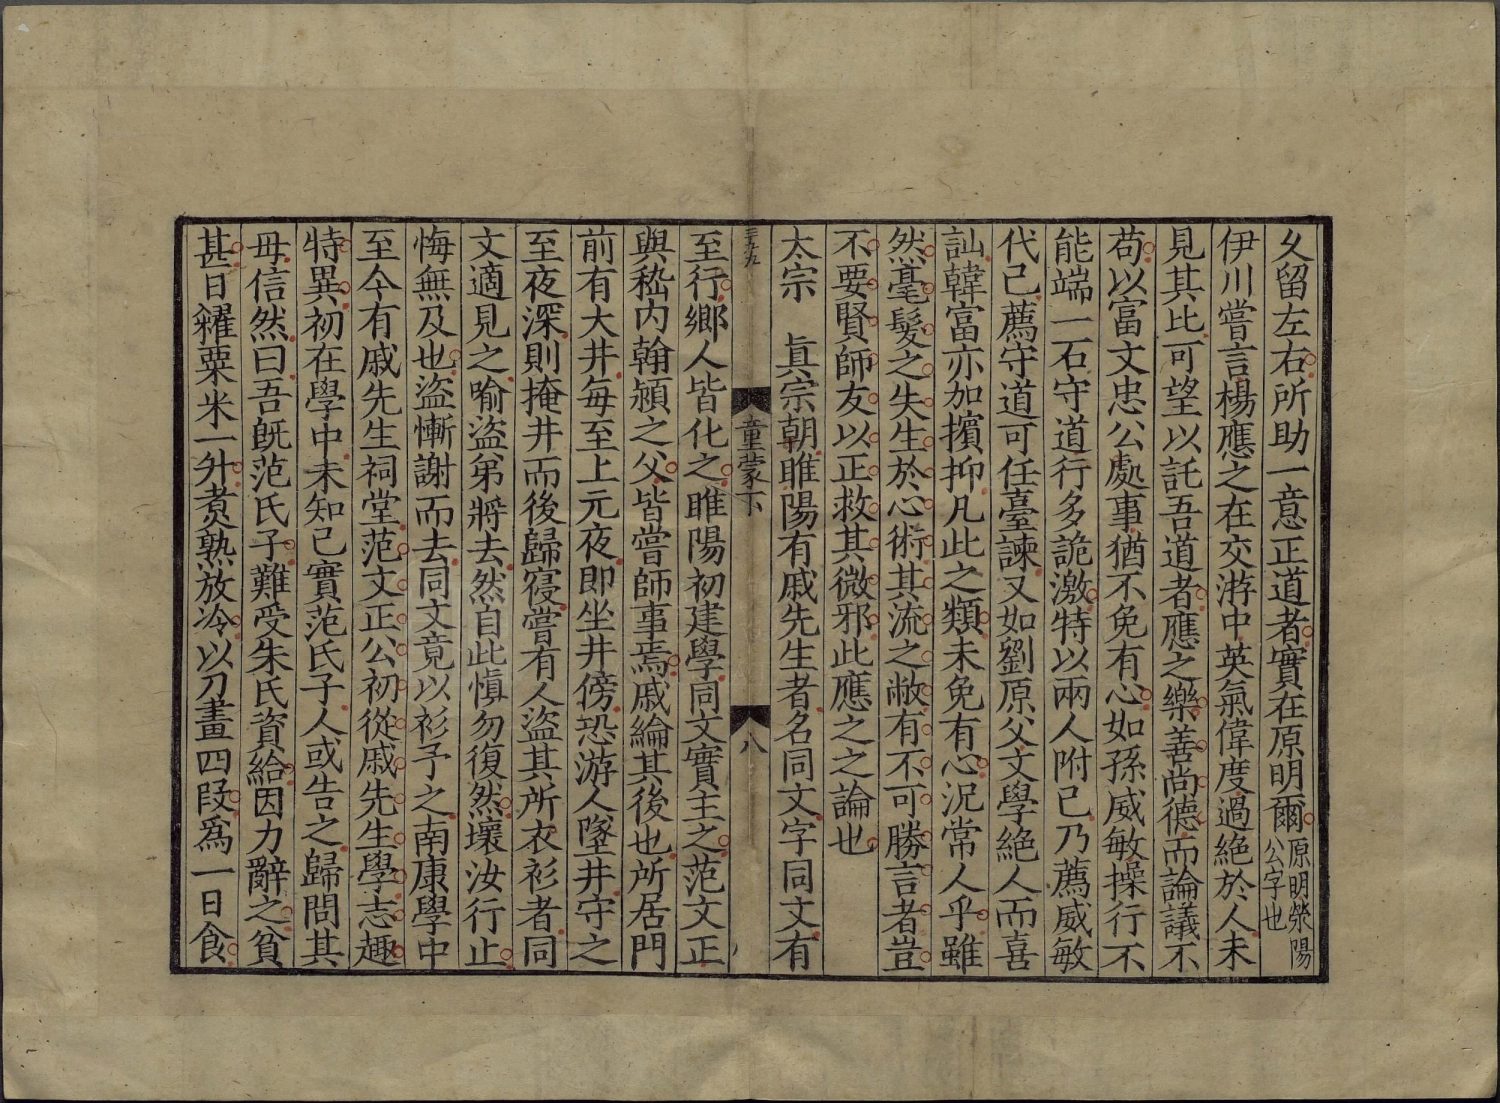 久留左右所助一意正道者實在原明爾原明滎陽公字也
伊川嘗言楊應之在交游中英氣偉度過絕於人未
見其比可望以託吾道者應之樂善尚德而論議不
苟以富文忠公處事猶不免有心如孫威敏操行不
能端一石守道行多詭激特以兩人附己乃薦威敏
代己薦守道可任臺諫又如劉原父文學絕人而喜
訕韓富亦加擯抑凡此之類未免有心況常人乎雖
然毫髮之失生於心術其流之敝有不可勝言者豈
不要賢師友以正救其微邪此應之之論也
太宗　眞宗朝睢陽有戚先生者名同文字同文有
童蒙下
八
至行鄉人皆化之睢陽初建學同文實主之范文正
與嵇内翰潁之父皆嘗師事焉戚綸其後也所居門
前有大井每至上元夜即坐井傍恐游人墜井守之
至夜深則掩井而後歸寢嘗有人盜其所衣衫者同
文適見之喻盜弟將去然自此慎勿復然壞汝行止
悔無及也盜慚謝而去同文竟以衫予之南康學中
至今有戚先生祠堂范文正公初從戚先生學志趣
特異初在學中未知己實范氏子人或告之歸問其
母信然曰吾旣范氏子難受朱氏資給因力辭之貧
甚日糴粟米一升煮熟放冷以刀畫四段爲一日食